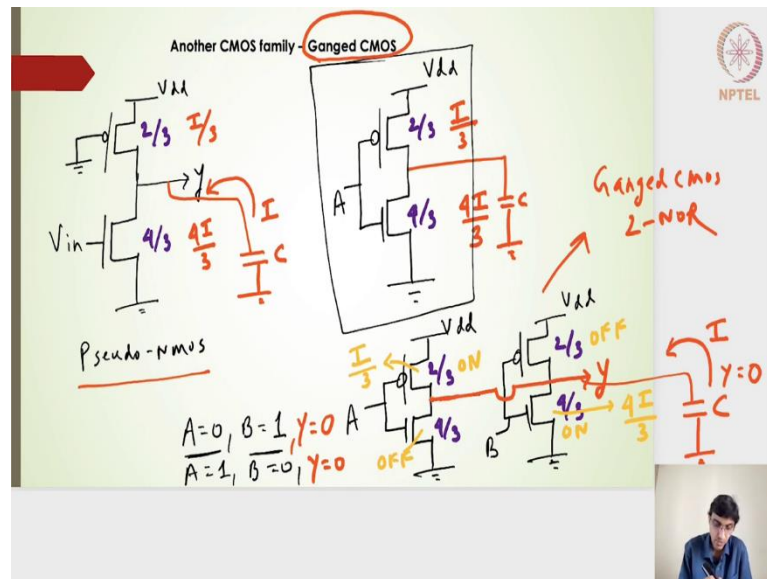 Another CMOS family - Ganged CMOS
NPTEL
Vdd
2/3 I/3
y
I
Vin
4/3 4I/3
C
Pseudo-Nmos
Vdd
2/3 I/3
A
4/3 4I/3
C
Ganged cmos
2-NOR
Vdd
I/3
2/3 ON
A
4/3
OFF
Vdd
2/3 OFF
Y
B
4/3
ON
4I/3
I
Y=0
C
A=0, B=1, Y=0
A=1, B=0, Y=0